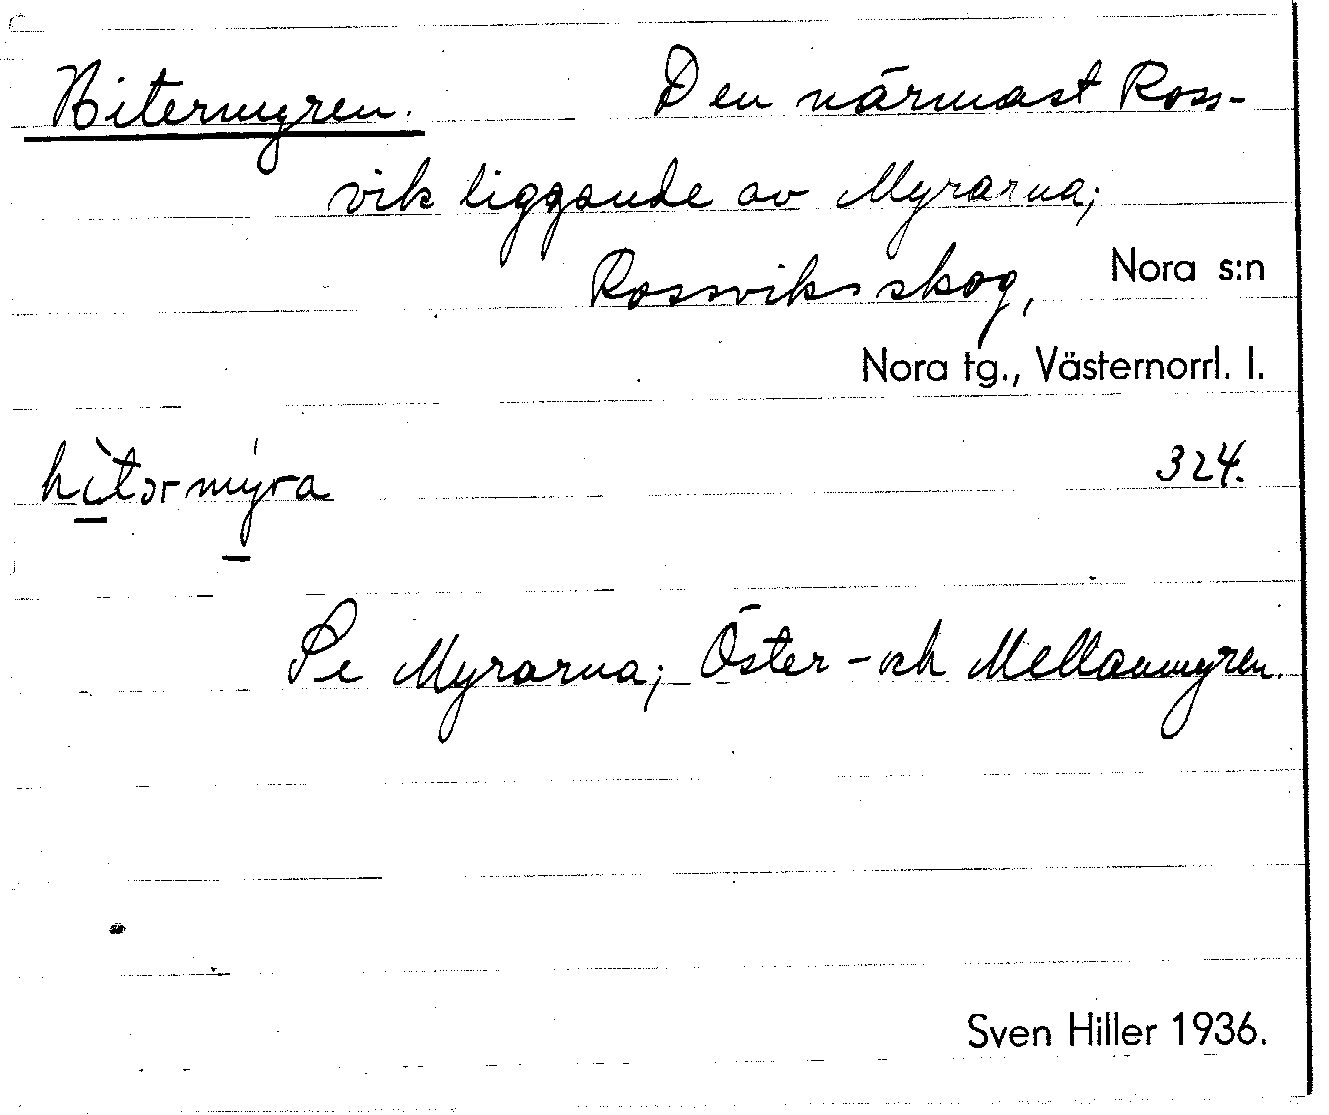 Hitermyren. Den närmast Ross-
vik liggande av Myrarna;
Rossviks skog, Nora s:n
Nora tg., Västernorrl. l.
hìtərmýra 324.
Se Myrarna; Öster- och Mellanmyren.
Sven Hiller 1936.